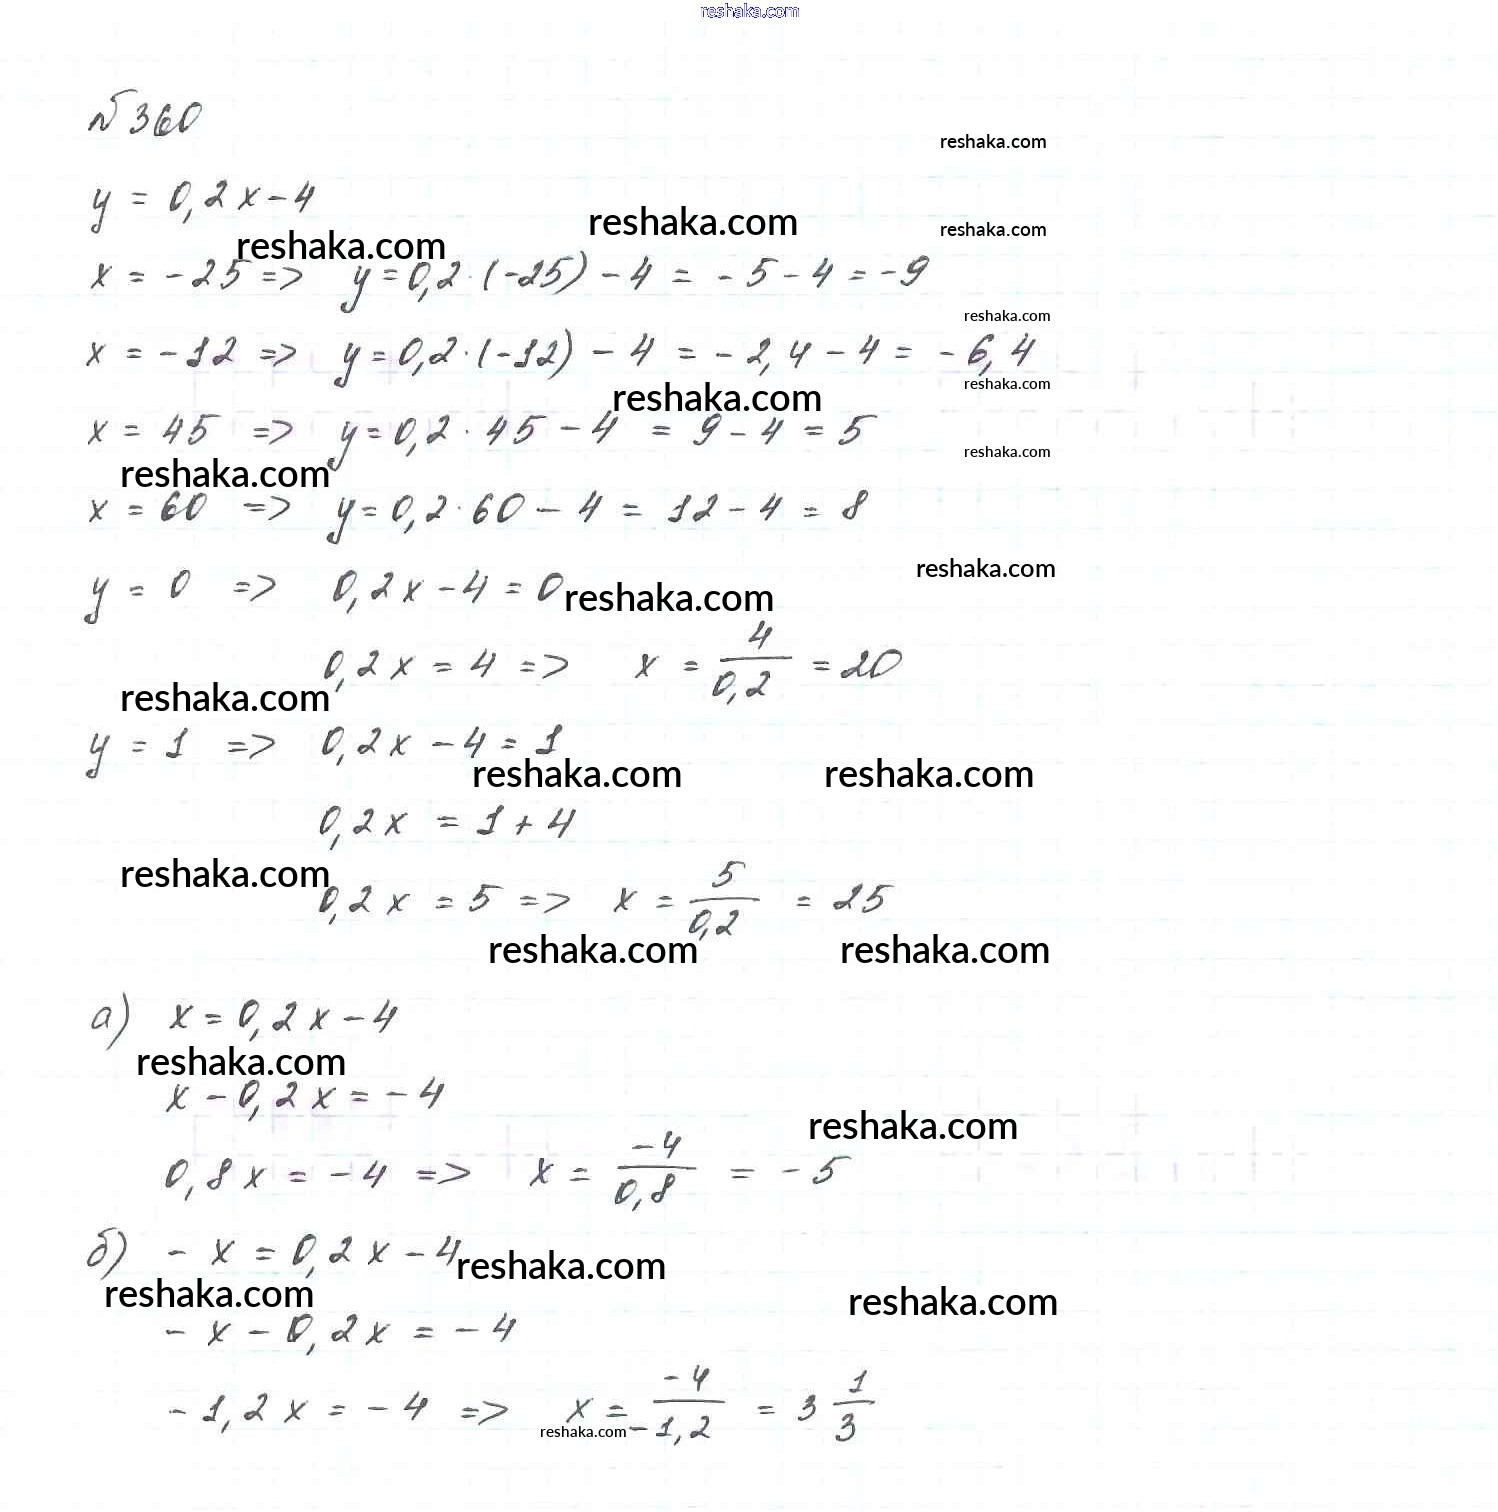 reshaka.com
№360
reshaka.com
y = 0,2x - 4
reshaka.com reshaka.com reshaka.com
x = -25 => y = 0,2 · (-25) - 4 = -5 - 4 = -9
reshaka.com
x = -12 => y = 0,2 · (-12) - 4 = -2,4 - 4 = -6,4
reshaka.com reshaka.com
x = 45 => y = 0,2 · 45 - 4 = 9 - 4 = 5
reshaka.com reshaka.com
x = 60 => y = 0,2 · 60 - 4 = 12 - 4 = 8
reshaka.com
y = 0 => 0,2x - 4 = 0
reshaka.com
0,2x = 4 => x = 4/0,2 = 20
reshaka.com
y = 1 => 0,2x - 4 = 1
reshaka.com reshaka.com
0,2x = 1 + 4
reshaka.com
0,2x = 5 => x = 5/0,2 = 25
reshaka.com reshaka.com
а) x = 0,2x - 4
reshaka.com
x - 0,2x = -4
reshaka.com
0,8x = -4 => x = -4/0,8 = -5
б) -x = 0,2x - 4
reshaka.com
reshaka.com reshaka.com
-x - 0,2x = -4
-1,2x = -4 => x = -4/-1,2 = 3 1/3
reshaka.com